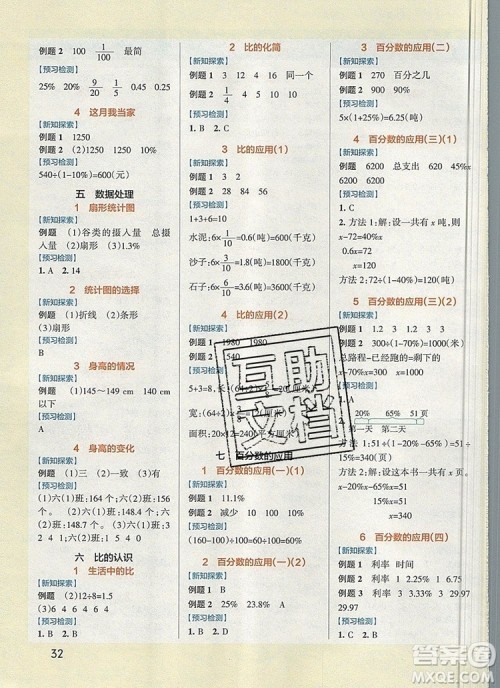 例题 2 100 1/100 最简
【预习检测】
25% 20% 9/20 1/20 45% 5%
4 这月我当家
【新知探索】
例题 1 1250
例题 2 (2)1250 1250
【预习检测】
540÷(1-10%)=600(元)
五 数据处理
1 扇形统计图
【新知探索】
例题 (1)谷类的摄入量 总摄
入量 (2)扇形 (3)1.3%
【预习检测】
1. A 2. 14
2 统计图的选择
【新知探索】
例题 (1)折线 (2)条形
(3)扇形
【预习检测】
B
3 身高的情况
【新知探索】
例题 (1)145~149 cm 140 cm
以下
【预习检测】
4 身高的变化
【新知探索】
例题 (1)三 (2)一致 (3)六
【预习检测】
(1)六(1)班:164 个;六(2)班:
167 个。
(2)六(1)班:116 个;六(2)班:
177.7 个。
(3)六(1)班:148.4 个;六(2)班:
171.9 个。
六 比的认识
1 生活中的比
【新知探索】
例题 (2)12÷8=1.5
(3)6 4 6 4 4 6
【预习检测】
1. B 2. A
32
2 比的化简
【新知探索】
例题 1 3 12 4 16 同一个
【预习检测】
1. B 2. C
3 比的应用(1)
【新知探索】
例题 1 2 3
例题 2 28 84 84 28
【预习检测】
1+3+6=10
水泥:6×1/10=0.6(吨)=600(千克)
4 比的应用(2)
【新知探索】
例题 1 1980 1980
【预习检测】
七 百分数的应用
1 百分数的应用(一)(1)
【新知探索】
例题 1 11.1%
例题 2 减少 10 100 10
【预习检测】
(160-100)÷100=60%
2 百分数的应用(一)(2)
【新知探索】
例题 1 9% 19% 10%
【预习检测】
1. A 2. B
3 百分数的应用(二)
【新知探索】
例题 1 270 百分之几
例题 2 900 90%
【预习检测】
5×(1+25%)=6.25(吨)
4 百分数的应用(三)(1)
【新知探索】
例题 6200 总支出 60% 36%
6200 6200
【预习检测】
1. C
2. 方法 1:解:设一共有 x t。
x-72=40%x
x=120
方法 2:72÷(1-40%)=120(t)
5 百分数的应用(三)(2)
【新知探索】
例题 1 1.2 3 1.2 3
例题 2 800÷80%=1000(米)
总路程-已经跑的=剩下的
x-80%x
【预习检测】
1. A
2. 20% 65% 51 页
第一天 第二天
x页
解:设这本书一共有 x 页。
x-20%x-65%x=51
15%x=51
x=340
6 百分数的应用(四)
【新知探索】
例题 1 利率 时间
例题 2 利率
【预习检测】
1. C 2. A
互助
文档
答案圈
MXQE.COM